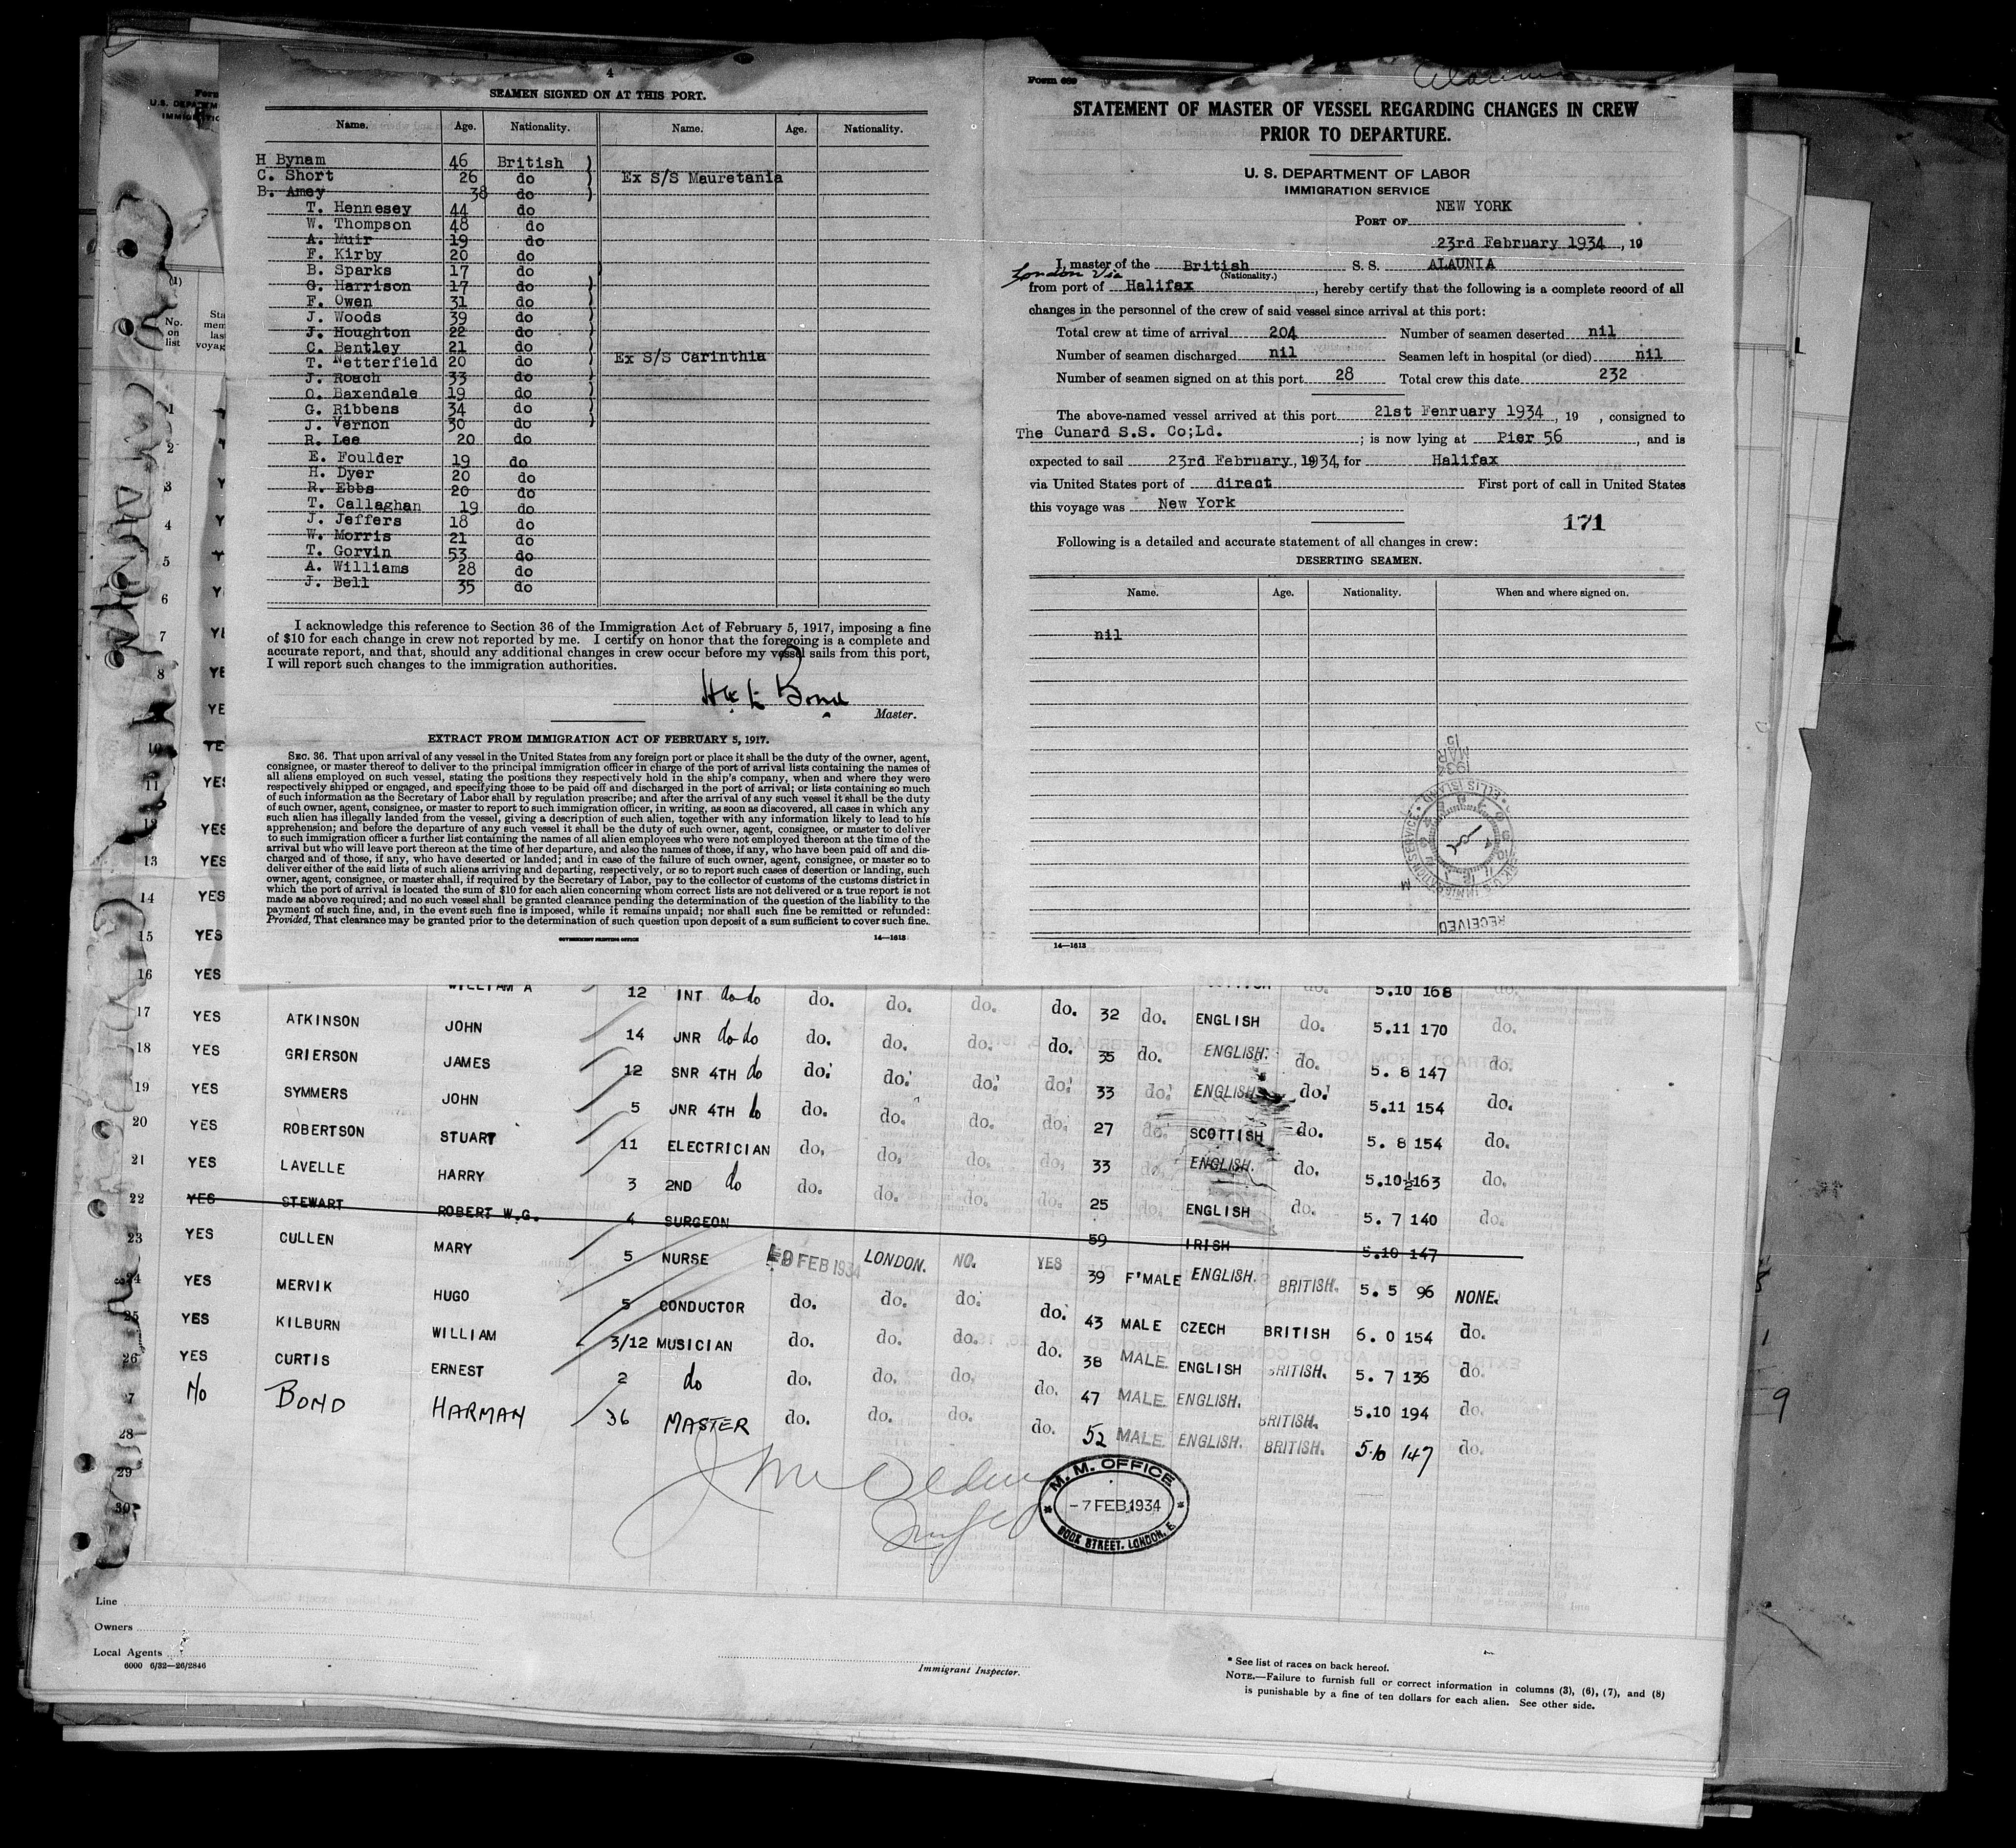 4
SEAMEN SIGNED ON AT THIS PORT.
Name. Age. Nationality. Name. Age. Nationality.
H Bynam 46 British
C. Short 26 do Ex S/S Mauretania
B. Amey 38 do
T. Hennesey 44 do
W. Thompson 48 do
A. Muir 19 do
F. Kirby 20 do
B. Sparks 17 do
G. Harrison 17 do
F. Owen 31 do
J. Woods 39 do
J. Houghton 22 do
C. Bentley 21 do Ex S/S Carinthia
T. Netterfield 20 do
J. Roach 33 do
O. Baxendale 19 do
G. Ribbens 34 do
J. Vernon 30 do
R. Lee 20 do
E. Foulder 19 do
H. Dyer 20 do
R. Ebbs 20 do
T. Callaghan 19 do
J. Jeffers 18 do
W. Morris 21 do
T. Gorvin 53 do
A. Williams 28 do
J. Bell 35 do
I acknowledge this reference to Section 36 of the Immigration Act of February 5, 1917, imposing a fine
of $10 for each change in crew not reported by me. I certify on honor that the foregoing is a complete and
accurate report, and that, should any additional changes in crew occur before my vessel sails from this port,
I will report such changes to the immigration authorities.
Bond
Master.
EXTRACT FROM IMMIGRATION ACT OF FEBRUARY 5, 1917.
SEC. 36. That upon arrival of any vessel in the United States from any foreign port or place it shall be the duty of the owner, agent,
consignee, or master thereof to deliver to the principal immigration officer in charge of the port of arrival lists containing the names of
all aliens employed on such vessel, stating the positions they respectively hold in the ship's company, when and where they were
respectively shipped or engaged, and specifying those to be paid off and discharged in the port of arrival; or lists containing so much
of such information as the Secretary of Labor shall by regulation prescribe; and after the arrival of any such vessel it shall be the duty
of such owner, agent, consignee, or master to report to such immigration officer, in writing, as soon as discovered, all cases in which any
such alien has illegally landed from the vessel, giving a description of such alien, together with any information likely to lead to his
apprehension; and before the departure of any such vessel it shall be the duty of such owner, agent, consignee, or master to deliver
to such immigration officer a further list containing the names of all alien employees who were not employed thereon at the time of the
arrival but who will leave port thereon at the time of her departure, and also the names of those, if any, who have been paid off and dis-
charged and of those, if any, who have deserted or landed; and in case of the failure of such owner, agent, consignee, or master so to
deliver either of the said lists of such aliens arriving and departing, respectively, or so to report such cases of desertion or landing, such
owner, agent, consignee, or master shall, if required by the Secretary of Labor, pay to the collector of customs of the customs district in
which the port of arrival is located the sum of $10 for each alien concerning whom correct lists are not delivered or a true report is not
made as above required; and no such vessel shall be granted clearance pending the determination of the question of the liability to the
payment of such fine, and, in the event such fine is imposed, while it remains unpaid; nor shall such fine be remitted or refunded:
Provided, That clearance may be granted prior to the determination of such question upon deposit of a sum sufficient to cover such fine.
GOVERNMENT PRINTING OFFICE 14—1613
Form 689
Alaunia
STATEMENT OF MASTER OF VESSEL REGARDING CHANGES IN CREW
PRIOR TO DEPARTURE.
U. S. DEPARTMENT OF LABOR
IMMIGRATION SERVICE
PORT OF NEW YORK
23rd February 1934, 19
I, master of the British S. S. ALAUNIA
(Nationality.)
London Via
from port of Halifax, hereby certify that the following is a complete record of all
changes in the personnel of the crew of said vessel since arrival at this port:
Total crew at time of arrival 204 Number of seamen deserted nil
Number of seamen discharged nil Seamen left in hospital (or died) nil
Number of seamen signed on at this port 28 Total crew this date 232
The above-named vessel arrived at this port 21st Fenruary 1934, 19 , consigned to
The Cunard S.S. Co;Ld. ; is now lying at Pier 56, and is
expected to sail 23rd February, 1934, for Halifax
via United States port of direct First port of call in United States
this voyage was New York
171
Following is a detailed and accurate statement of all changes in crew:
DESERTING SEAMEN.
Name. Age. Nationality. When and where signed on.
nil
1934 MAR 15
ELLIS ISLAND
RECEIVED
14—1613
Form
U.S. DEPARTM
IMMIGRATIC
(1)
No. on list
Sta
mem
las
voyag
1
2
3
4
5
6
7
8
10
11
12 YES
13 YES
14 YES
15 YES
16 YES WILLIAM A 12 INT do do do. do. do. do. 5.10 168 do.
17 YES ATKINSON JOHN 14 JNR do do do. do. do. do. 32 do. ENGLISH do. 5.11 170 do.
18 YES GRIERSON JAMES 12 SNR 4TH do do. do. do. do. 35 do. ENGLISH. do. 5. 8 147 do.
19 YES SYMMERS JOHN 5 JNR 4TH do do. do. do. do. 33 do. ENGLISH do. 5.11 154 do.
20 YES ROBERTSON STUART 11 ELECTRICIAN do. do. do. do. 27 do. SCOTTISH do. 5. 8 154 do.
21 YES LAVELLE HARRY 3 2ND do do. do. do. do. 33 do. ENGLISH. do. 5.10½ 163 do.
22 YES STEWART ROBERT W.G. 4 SURGEON 25 do. ENGLISH do. 5. 7 140 do.
59 IRISH 5.10 147
23 YES CULLEN MARY 5 NURSE FEB 1934 LONDON. NO. YES 39 F'MALE ENGLISH. BRITISH. 5. 5 96 NONE.
24 YES MERVIK HUGO 5 CONDUCTOR do. do. do. do. 43 MALE CZECH BRITISH 6. 0 154 do.
25 YES KILBURN WILLIAM 3/12 MUSICIAN do. do. do. do. 38 MALE. ENGLISH BRITISH. 5. 7 136 do.
26 YES CURTIS ERNEST 2 do do. do. do. do. 47 MALE ENGLISH. BRITISH. 5.10 194 do.
7 No BOND HARMAN 36 MASTER do. do. do. do. 52 MALE ENGLISH. BRITISH. 5.10 147 do.
28
29
30
M. M. OFFICE
-7 FEB 1934
DOCK STREET. LONDON, E.
Line
Owners
Local Agents
6000 6/32—26/2846
Immigrant Inspector.
* See list of races on back hereof.
NOTE.—Failure to furnish full or correct information in columns (3), (6), (7), and (8)
is punishable by a fine of ten dollars for each alien. See other side.